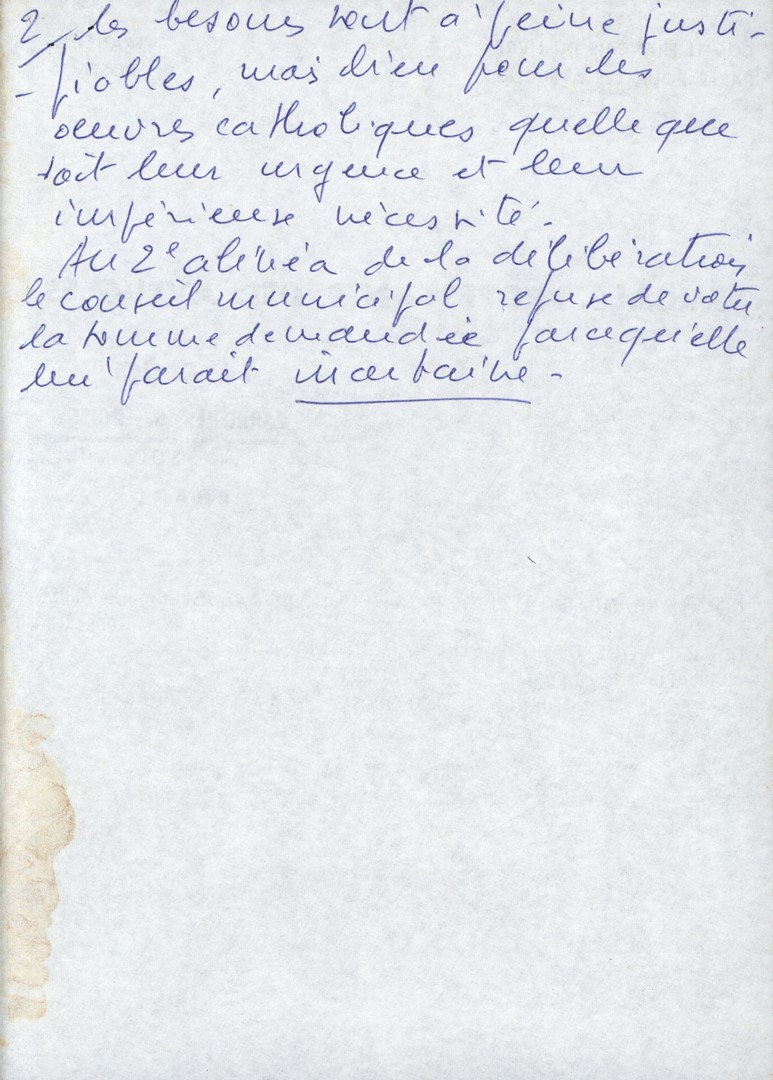 2/ les besoins sont à peine justi-
- fiables, mais dieu pour les
oeuvres catholiques quelle que
soit leur urgence et leur
impérieuse nécessité.
Au 2e alinéa de la délibération
le conseil municipal refuse de voter
la somme demandée parcequ'elle
lui parait incertaine -